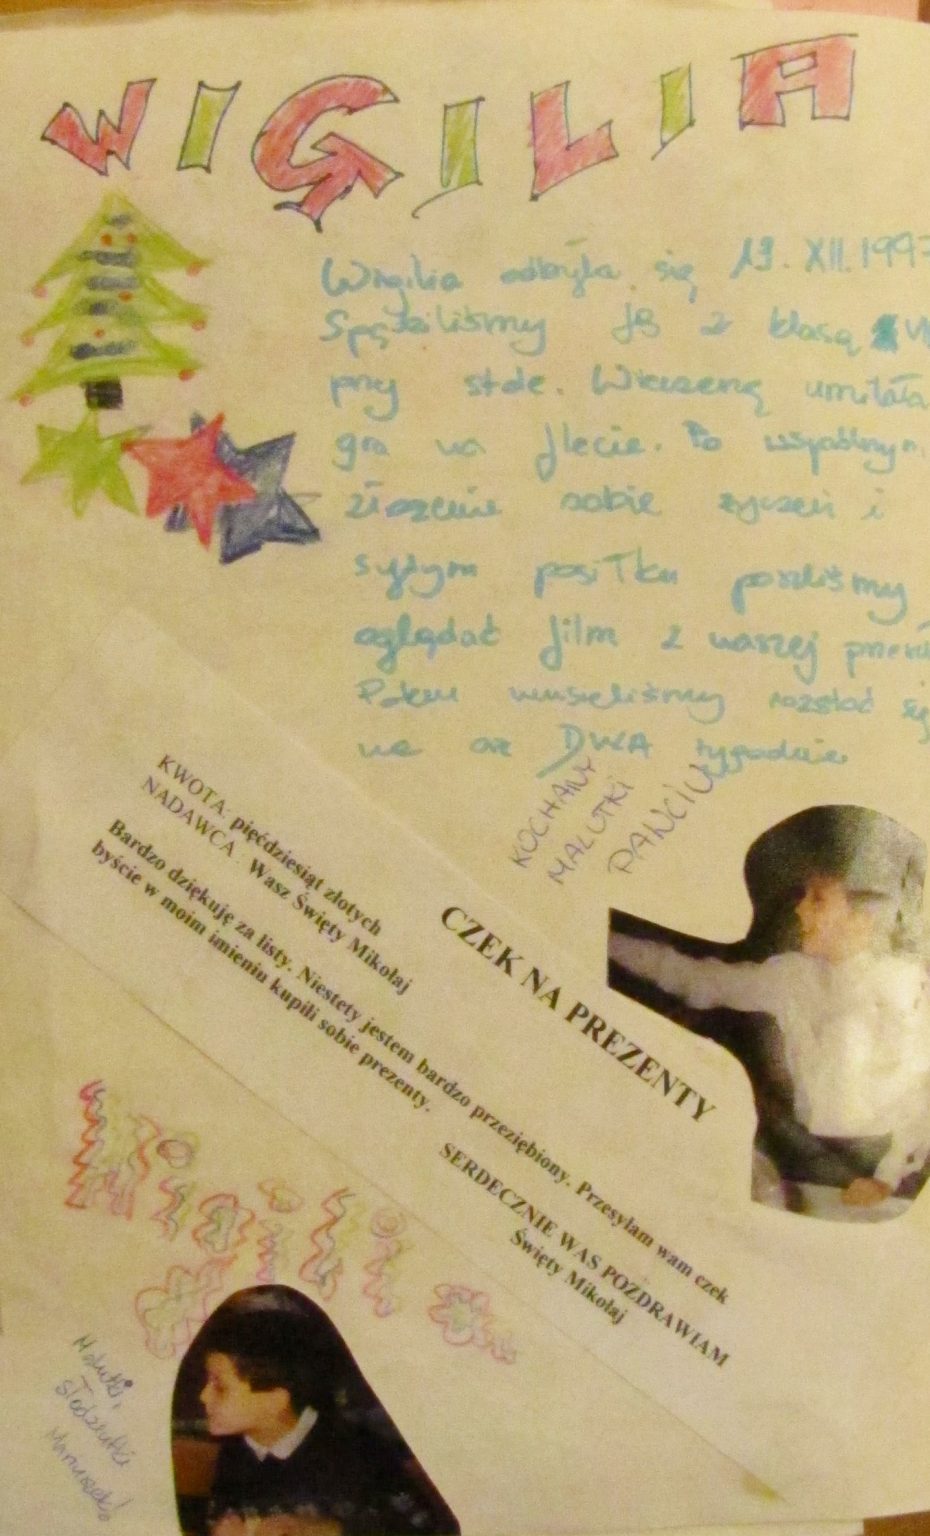 WIGILIA
Wigilia odbyła się 19. XII. 1997
Spędziliśmy ją z klasą VI
przy stole. Wieczerzę umilała
gra na flecie. Po wspólnym
złożeniu sobie życzeń i
sytym posiłku poszliśmy
oglądać film z naszej
Potem musieliśmy rozstać się
na aż DWA tygodnie
KOCHANY
MALUTKI
PANCIU
CZEK NA PREZENTY
KWOTA: pięćdziesiąt złotych
NADAWCA: Wasz Święty Mikołaj
Bardzo dziękuję za listy. Niestety jestem bardzo przeziębiony. Przesyłam wam czek
byście w moim imieniu kupili sobie prezenty.
SERDECZNIE WAS POZDRAWIAM
Święty Mikołaj
Wigilia
Malutki,
słodziutki